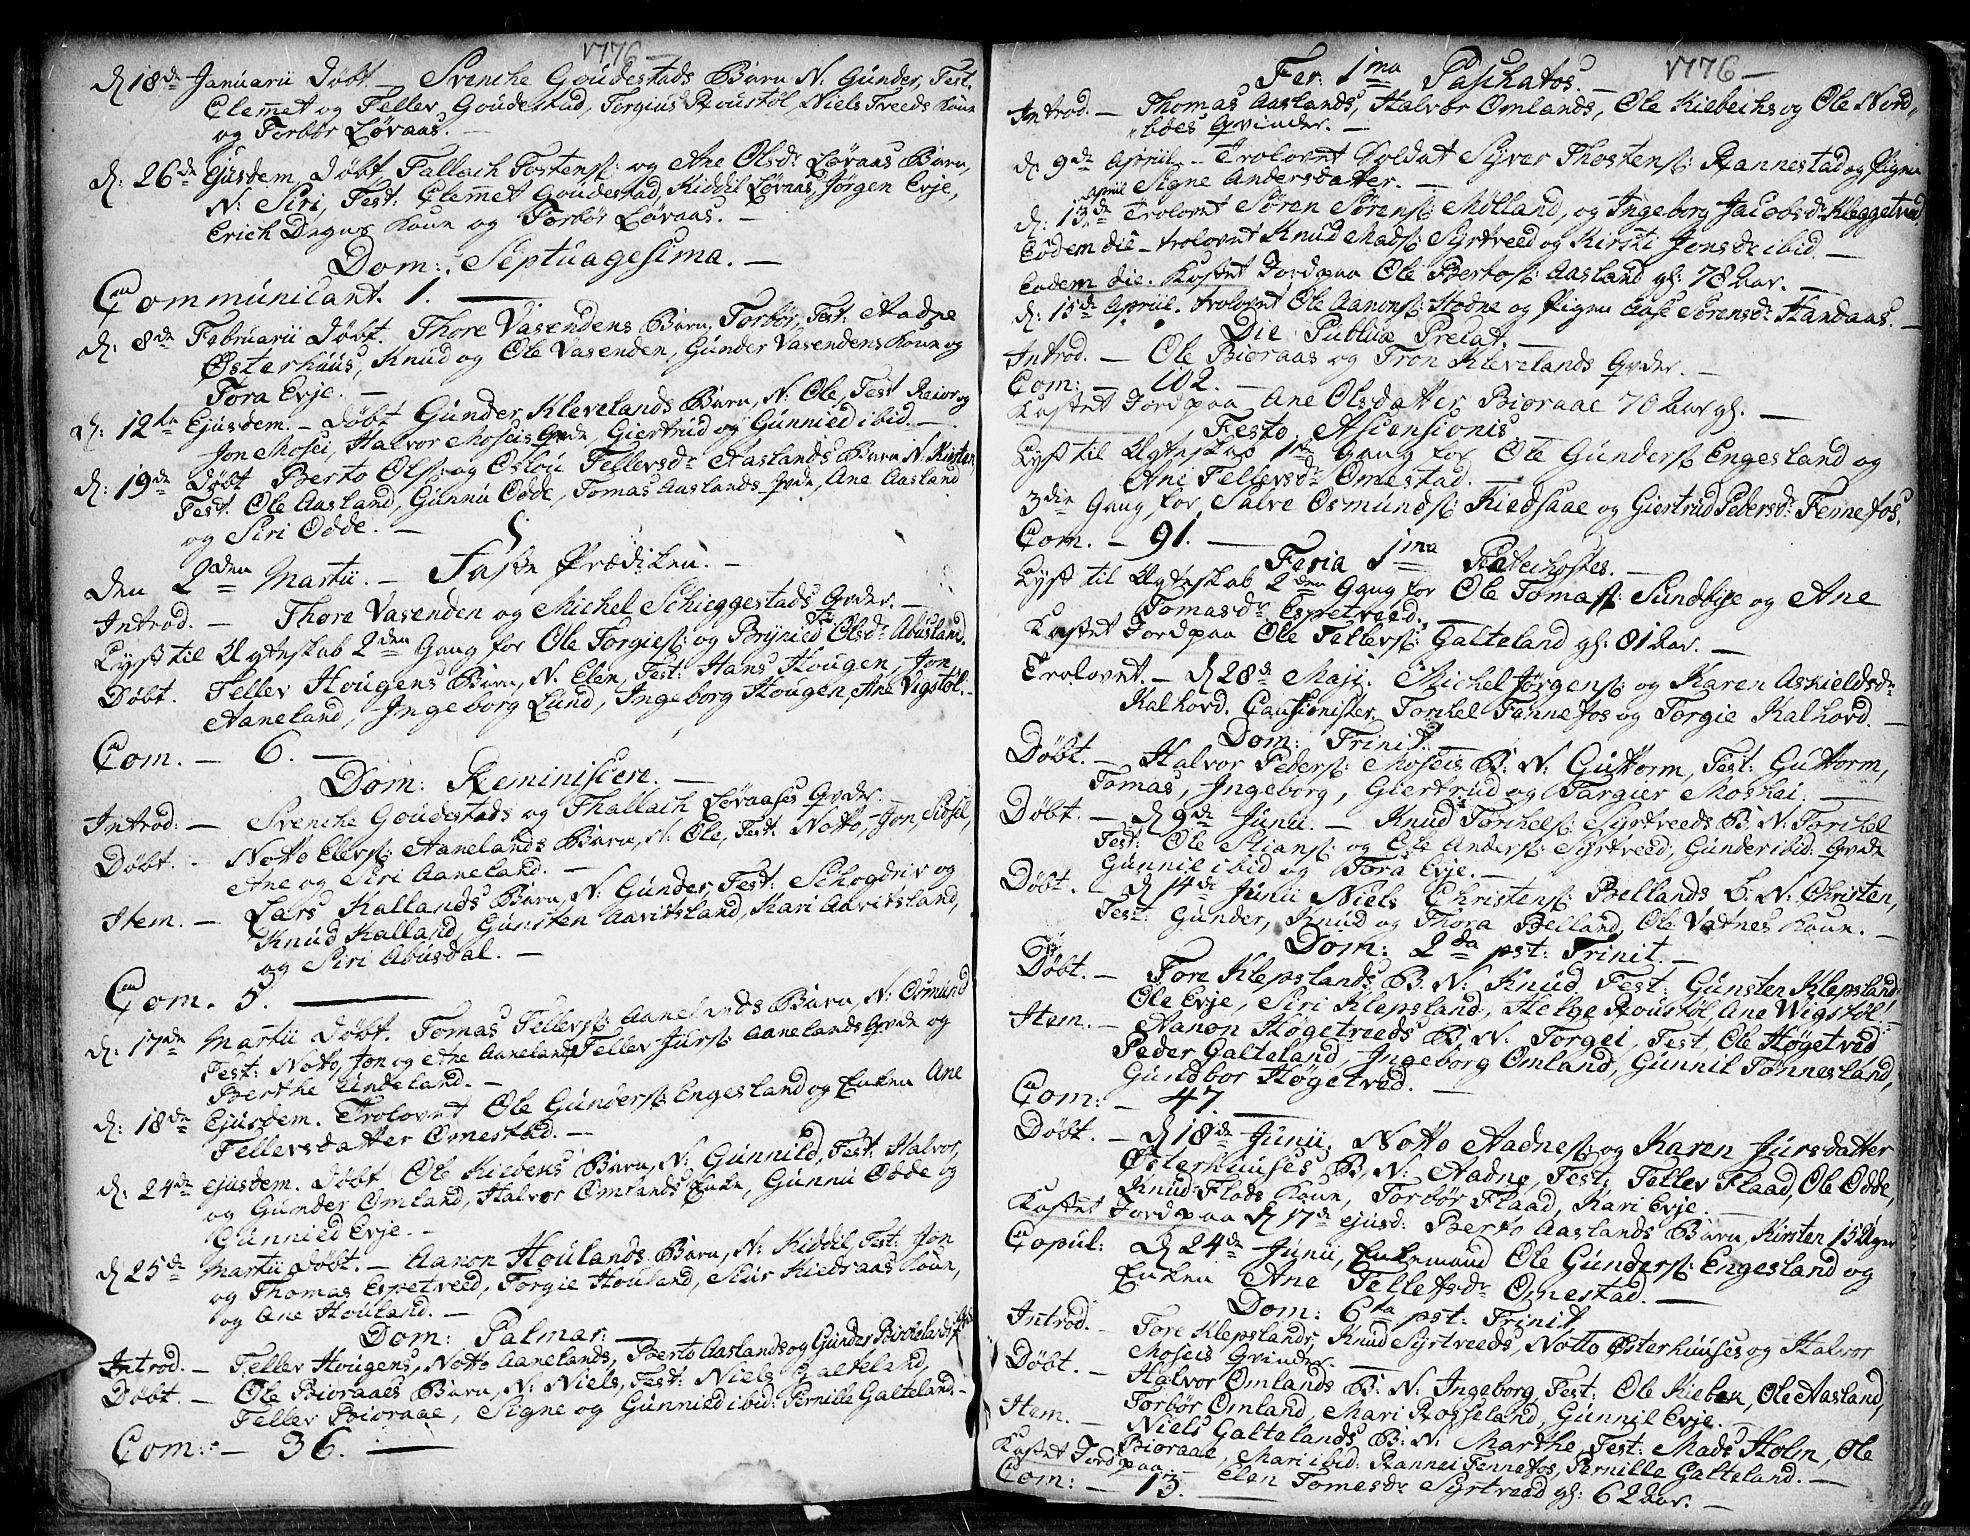 1776 –
d 18de Januarii Døbt – Svenche Goudestads Barn N. Gunder, Test.
Clemet og Tellev Goudestad, Torgius Roustøl, Niels Treeds Koun
og Torbør Løvaas. –
d: 26de Ejusdem, Døbt Tallach Tostens: og Ane Olsdr Løvaas Barn,
N: Siri, Test: Clemet Goudestad, Kiddil Løvaas, Jørgen Evje,
Erich Degns Koun og Torbør Løvaas. –
Dom: Septuagesima. –
Communicant. 1. –
d: 8de Februarii Døbt. Thore Vasendens Barn, Torbør, Test. Aadne
Østerhuus, Knud og Ole Vasenden, Gunder Vasendens Koun og
Tora Evje. –
d: 12te Ejusdem. – Døbt Gunder Klevelands Barn, N. Ole, Test Reior og
Jon Mosei, Halvor Moseis Qvde, Giertrud og Gunnied ibid. –
d: 19de Døbt Berto Ols: og Oslou Tellevsdr Aaslands Barn N. Kirsten,
Test. Ole Aasland, Gunnu Odde, Tomas Aaslands Qvde, Ane Aasland
og Siri Odde. –
den 2den Martii. – Faste Prædiken. –
Introd. – Thore Vasenden og Michel Schieggestads Qvder. –
Lyst til Ægteskab 2den Gang for Ole Torgies: og Brynied Olsdr Abusland.
Døbt. Tellev Hougens Barn, N. Elen, Test: Hans Hougen, Jon
Aaneland, Ingeborg Lund, Ingeborg Hougen, Ane Vigstøl. –
Com. – 6. –
Dom: Reminiscere. –
Introd: – Svenche Goudestads og Thallach Løvaases Qvder.
Døbt. – Notto Elevs: Aanelands Barn, N: Ole, Test: Notto, Jon, Sidsel,
Ane og Siri Aaneland. –
Item. – Lars Kallands Barn, N: Gunder, Test: Schogdriv og
Knud Kalland, Gunsten Aavitsland, Kari Aavitsland,
og Siri Abusdal. –
Com. 5. –
d: 17de Martii Døbt. Tomas Tellevs: Aanelands Barn, N: Osmund
Test: Notto, Jon og Ane Aaneland, Tellev Jurs: Aanelands Qvde og
Berthe Lindeland. –
d: 18de Ejusdem. Trolovet Ole Gunders: Engesland og Enken Ane
Tellevsdatter Omestad. –
d: 24de ejusdem. Døbt Ole Kiebeks Barn, N: Gunnild, Test: Halvor,
og Gunder Omland, Halvor Omlands Enke, Gunnu Odde og
Gunnied Evje. –
d 25de Martii Døbt. – Aanon Houlands Barn, N: Kiddil, Test: Jon
og Thomas Espetveed, Torgie Houland, Siur Kiedsaas Koun,
og Ane Houland. –
Dom: Palmar: –
Introd. – Tellev Hougens, Notto Aanelands, Berto Aaslands og Gunder Birkelands Qvder
Døbt. – Ole Bioraaes Barn, N: Niels, Test: Niels Galteland,
Tellev Bioraae, Signe og Gunnied ibid: Pernille Galteland. –
Com: – 36. –
1776 –
Fer: 1ma Paschatos. –
Introd. – Thomas Aaslands, Halvor Omlands, Ole Kiebeiks og Ole Nord„
„bøes Qvinder. –
d: 9de Aprill – Trolovet Soldat Syver Thostens: Rannestad og Pigen
Signe Andersdatter. –
d: 13de April Trolovet Søren Sørens: Mølland, og Ingeborg Jacobsdr Kleggetved
Eodem die – trolovet Knud Mads: Syrtveed og Kirsti Jonsdr ibid. –
Eodem die. Kastet Jord paa Ole Bertos: Aasland gl: 78 Aar. –
d: 15de Aprill. trolovet Ole Aanons: Hodne og Pigen Aase Sørensdr Handaas. –
Die Publicæ Precat. –
Introd. – Ole Bioraas og Tron Klevelands Qvder. –
Com: – 102. –
Kastet Jord paa Ane Olsdatter Bioraae 70 Aar gl. –
Festo Ascensionis
Lyst til Ægteskab 1ste Gang for Ole Gunders: Engesland og
Ane Tellevsdr Omestad. –
3die Gang for Salve Osmunds: Kiedsaae og Giertrud Pedersdr Fennefos.
Com. – 91. –
Feria 1ma Pentecostes. –
Lyst til Ægteskab 2den Gang for Ole Tomas: Sundbye og Ane
Tomasdr Espetveed. –
Kastet Jord paa Ole Tellevs: Galteland gl: 81 Aar. –
Trolovet. – d 28de Maji. Michel Jørgens: og Karen Askieldsdr
Kalhovd. Cautionister Torchel Fannefos og Torgie Kalhovd. –
Dom: Trinit: –
Døbt. – Halvor Peders: Moseis B: N: Guttorm, Test: Guttorm,
Tomas, Ingeborg, Giertrud og Targier Moskai. –
Døbt. – d 9de Junii. – Knud Torchels: Syrtveeds B: N: Torchel
Test: Ole Stians: og Ole Anders: Syrtveed, Gunder ibid: Qvde
Gunnil ibid og Tora Evje. –
Døbt. – d 14de Junii Niels Christens: Bellands B. N: Christen,
Test: Gunder, Knud og Thora Belland, Ole Vatnes Koun. –
Dom: 2da pst: Trinit. –
Døbt. – Tore Klepslands B. N: Knud, Test: Gunsten Klepsland
Ole Evje, Siri Klepsland, Helge Roustøl, Ane Wigstøl. –
Item. – Aanon Høgetveeds B: N. Torgei, Test, Ole Høgetved
Peder Galteland, Ingeborg Omland, Gunnil Tønnesland,
Gundbor Høgetved. –
Com: – 47. –
Døbt. – d 18de Junii, Notto Aadnes: og Karen Jursdatter
Østerhuuses B: N: Aadne, Test: Tellev Flaad, Ole Odde,
Knud Flads Koun, Torbør Flaad, Kari Evje. –
Kastet Jord paa d 17de ejusd: Berto Aaslands Barn, Kirsten 15 Uger
Copul: d 24de Junii, Enkemand Ole Gunders: Engesland og
Enken Ane Tellefsdr Omestad. –
Dom: 6ta pst: Trinit
Introd. – Tore Klepslands, Knud Syrtveeds, Notto Østerhuuses og Halvor
Moseis Qvinder. –
Døbt. – Halvor Omlands B: N: Ingeborg, Test: Ole Kieben, Ole Aasland,
Torbør Omland, Mari Rosseland, Gunnil Evje. –
Item. – Niels Galtelands B: N: Marthe, Test: Mads Holm, Ole
Bioraae, Mari ibid: Rannei Fennefos, Pernille Galteland. –
Kastet Jord paa. – Elen Tomesdr Syrtveed gl: 62 Aar. –
Com: – 13. –